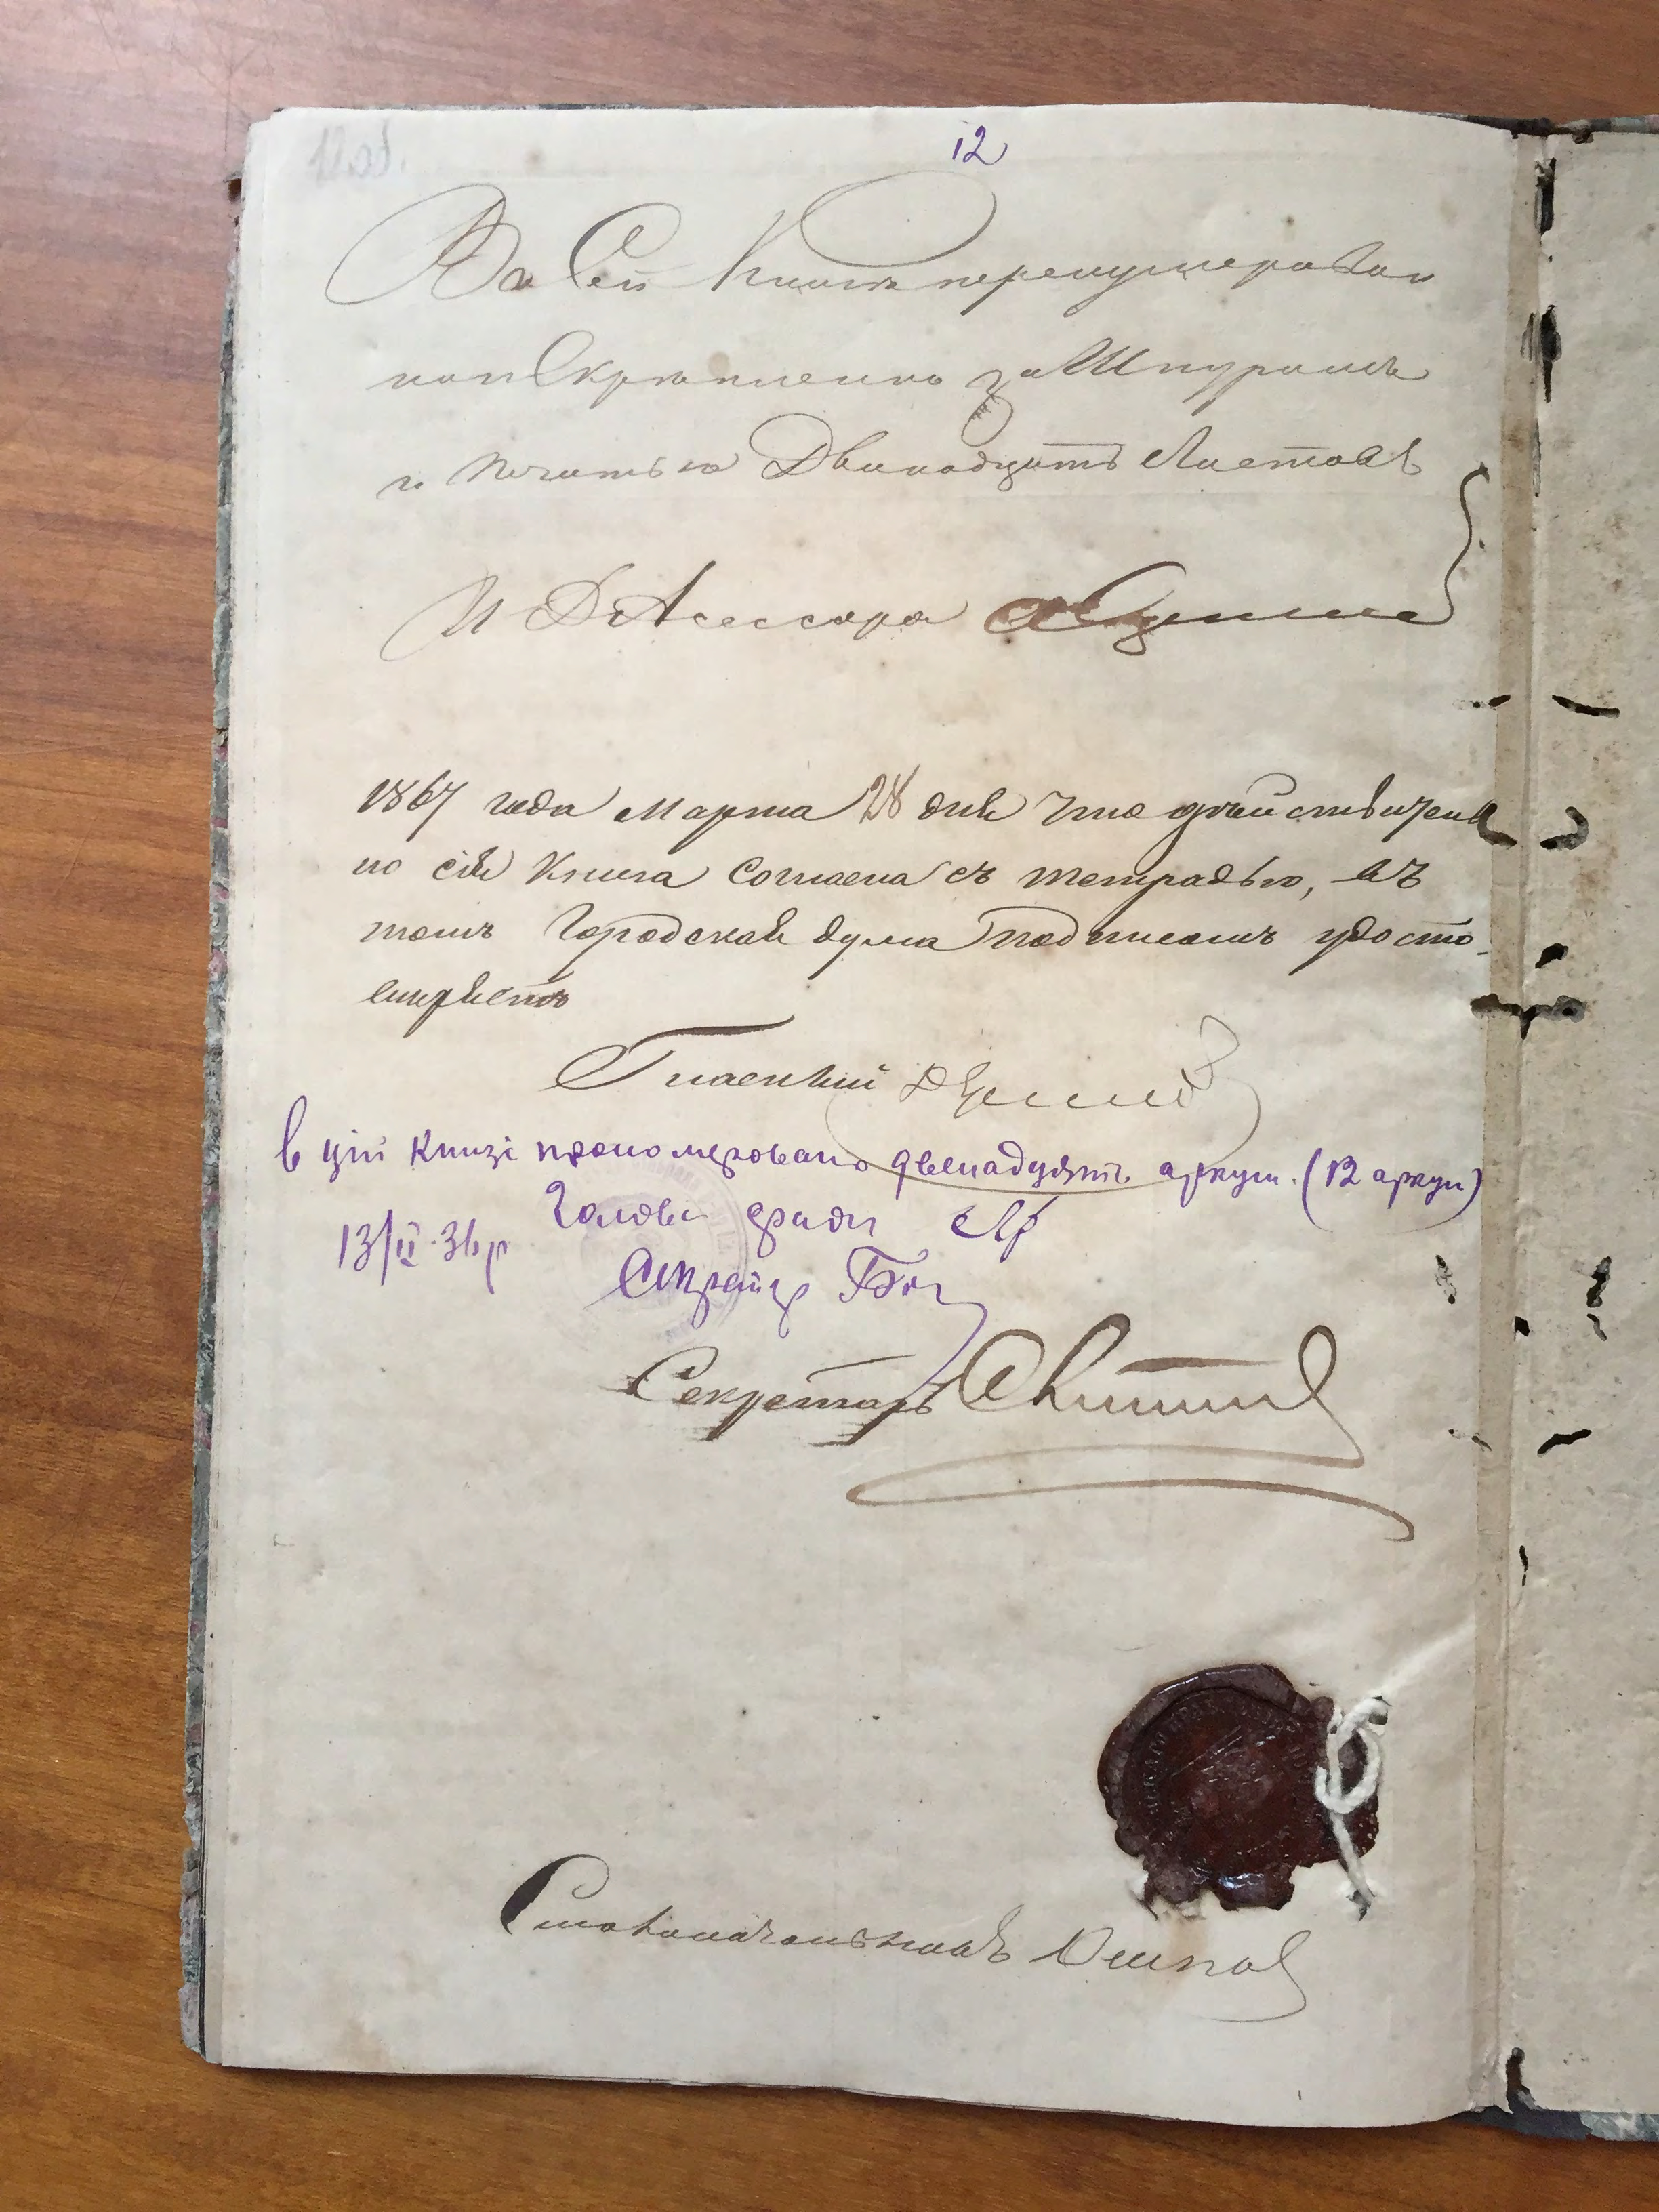 12 об.
12
Въ Сей Книге перенумерован
но и Скрепленно за Шнуромъ
и Печатью Двинадцать Листовъ
И Д Асессора
1867 года Марта 28 дня Что действитель
но сія Книга Согласна съ тетрадью, въ
томъ Городская дума подписомъ удосто
веряетъ
Гласный
в цій Книзі прономеровано двенадцять аркуш. (12 аркуш)
Голова ради
13/II 36 р
Секретар
Секретарь
Столоначальникъ Осипов